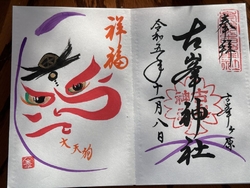 奉拝
古峯ヶ原
古峯神社
令和五年十一月八日
祥福
大天狗